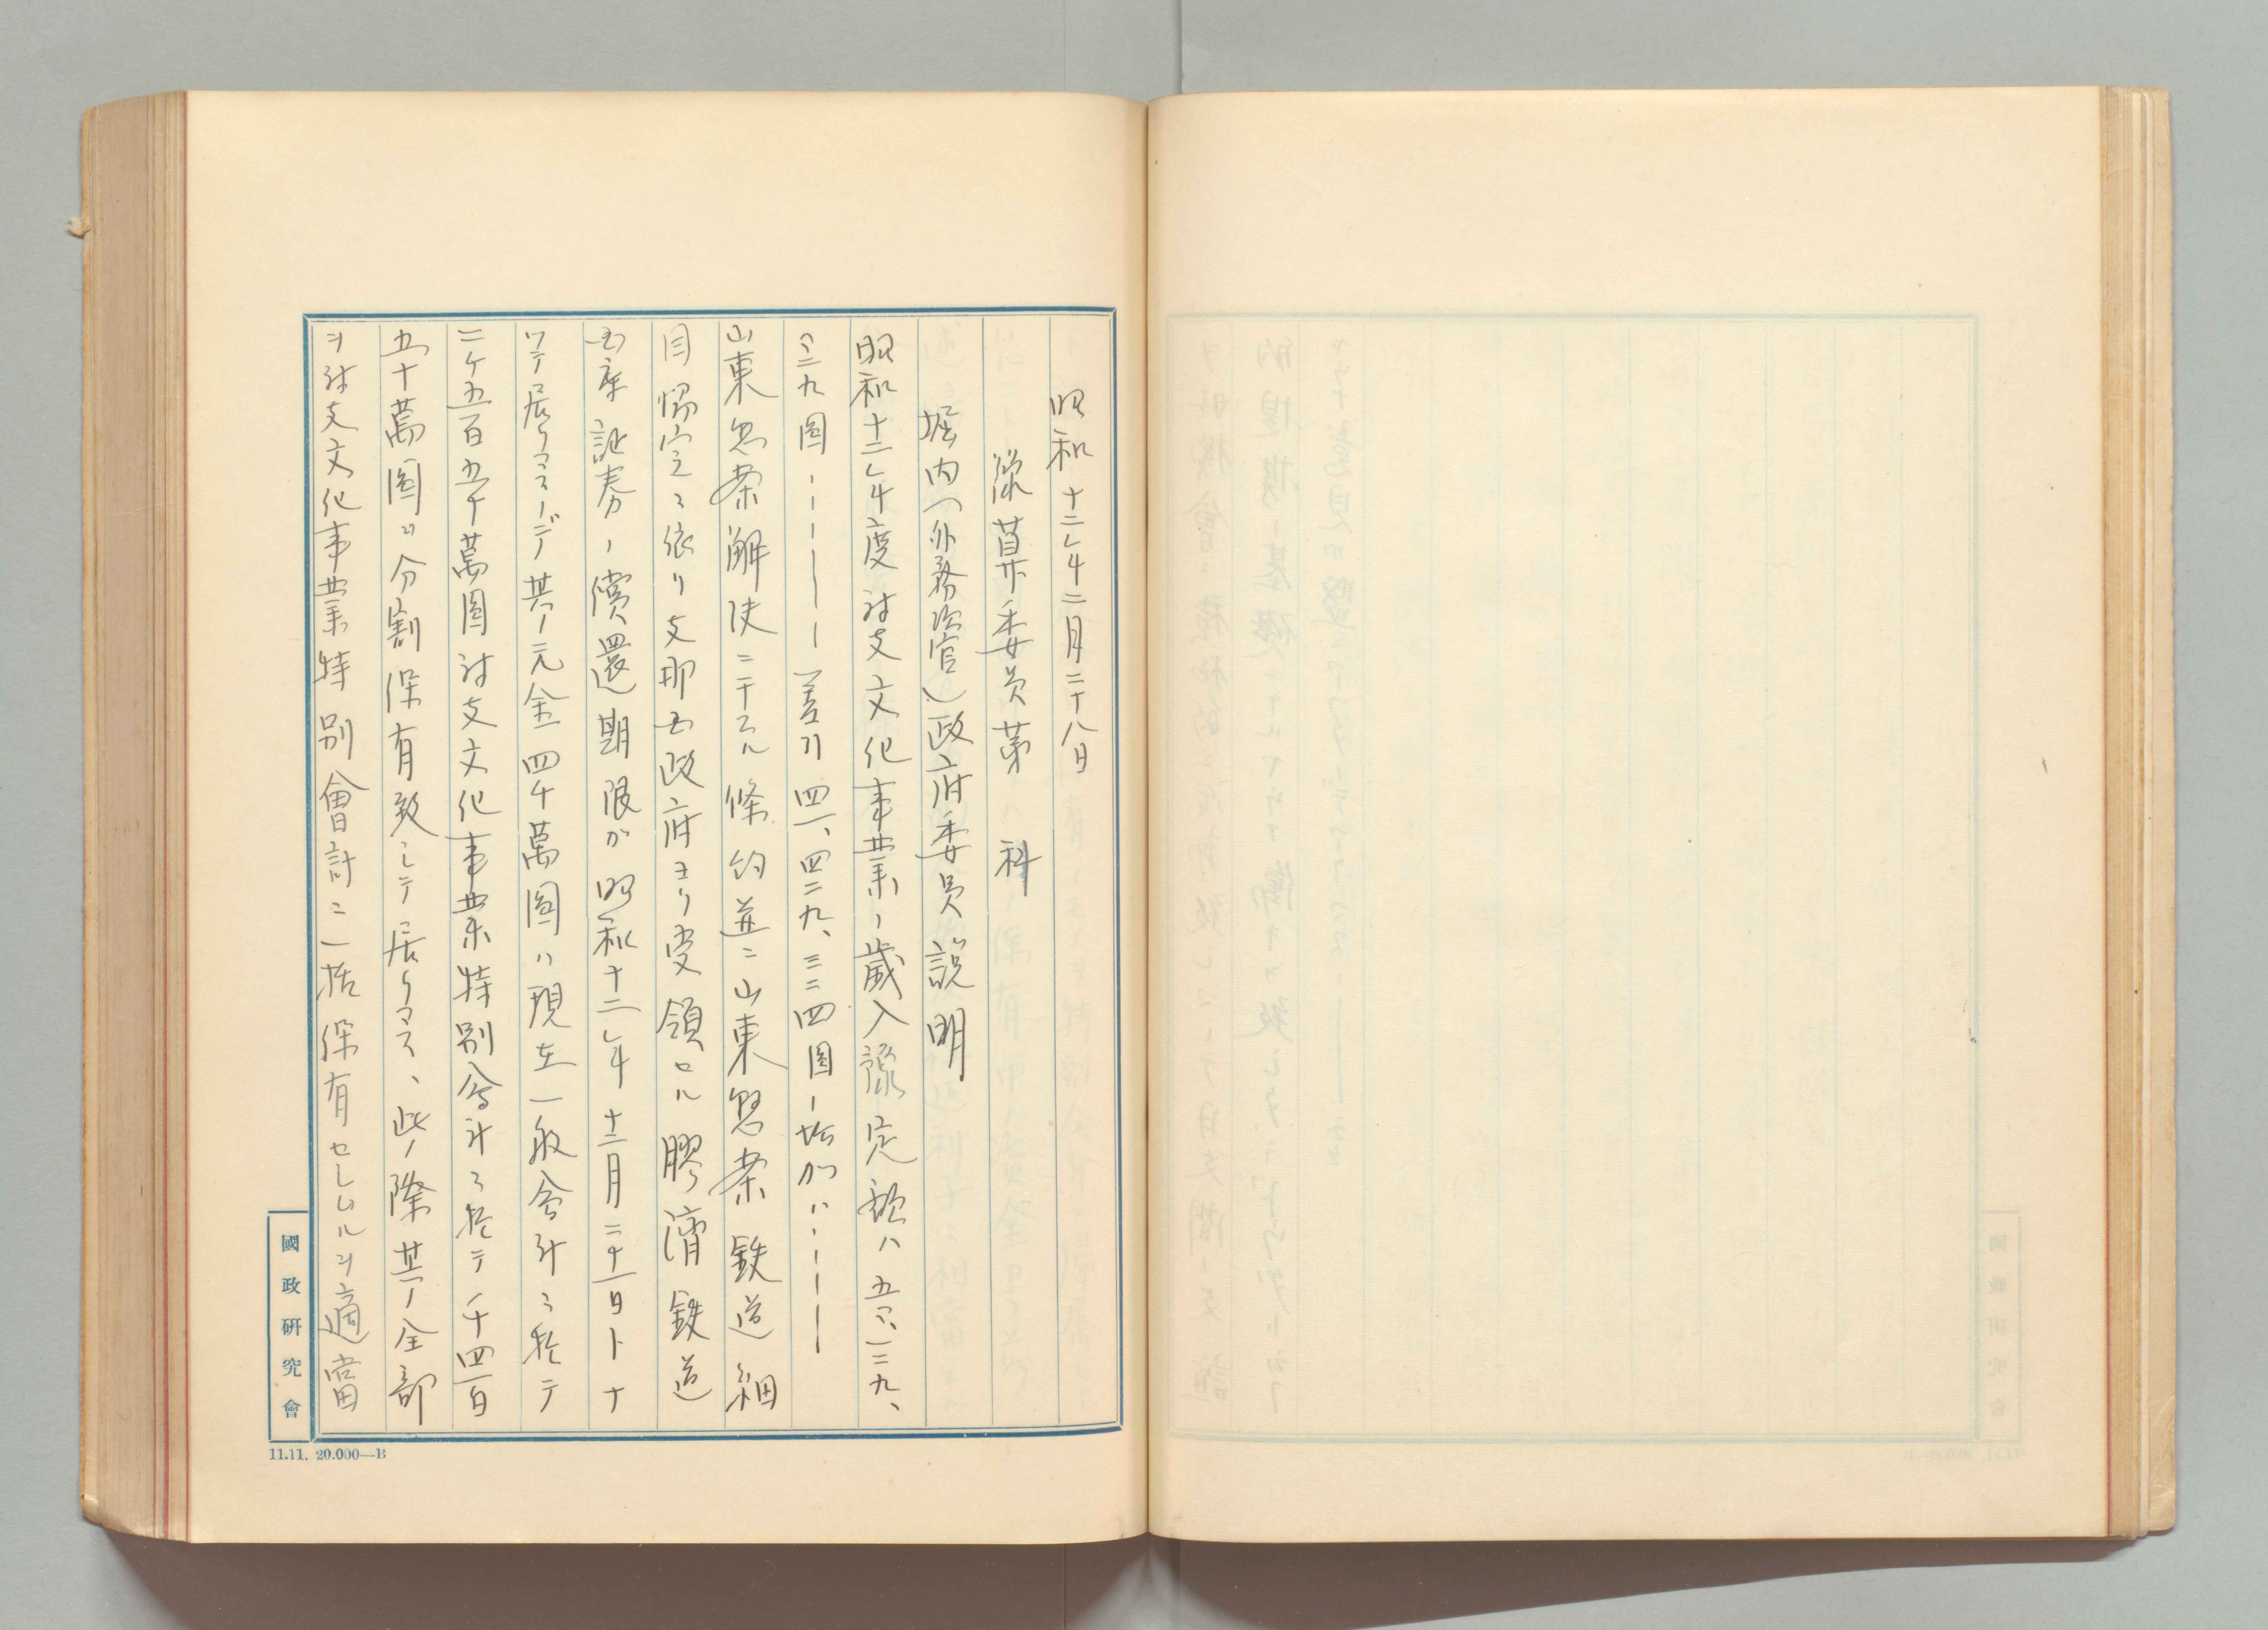 昭和十二年二月二十八日
豫算委員第　科
堀内(外務次官)政府委員説明
昭和十二年度対支文化事業ノ歳入豫定額ハ五六、一二九、
六三九圓ーーーーー差引四一、四二九、三三四圓ノ増加ハーーーー
山東懸案解決ニ干スル條約並ニ山東懸案鉄道細
目協定ニ依リ支那国政府ヨリ受領セル膠濟鉄道
国庫証券ノ償還期限ガ昭和十二年十二月三十一日トナ
ツテ居リマスノデ其ノ元金四千萬圓ハ現在一般会計ニ於テ
二千五百五十萬圓対支文化事業特別会計ニ於テ千四百
五十萬圓ヲ分割保有致シテ居リマス、此ノ際其ノ全部
ヲ対支文化事業特別會計ニ一括保有セシムルヲ適當
國政研究會
11.11. 20.000—B